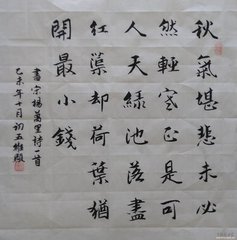 秋氣堪悲未必
然輕寒正是可
人天綠池落盡
紅蕖却荷葉猶
開最小錢
書宋楊萬里詩一首
乙未年十月初五